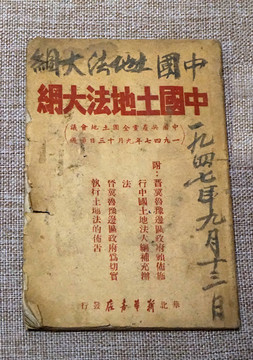 中國土地法大綱
中國土地法大綱
(中國共產黨全國土地會議
一九四七年九月十三日通過)
一九四七年九月十三日
附:晉冀魯豫邊區政府頒佈施
行中國土地法大綱補充辦
法
晉冀魯豫邊區政府為切實
執行土地法的佈告
華北新華書店發行